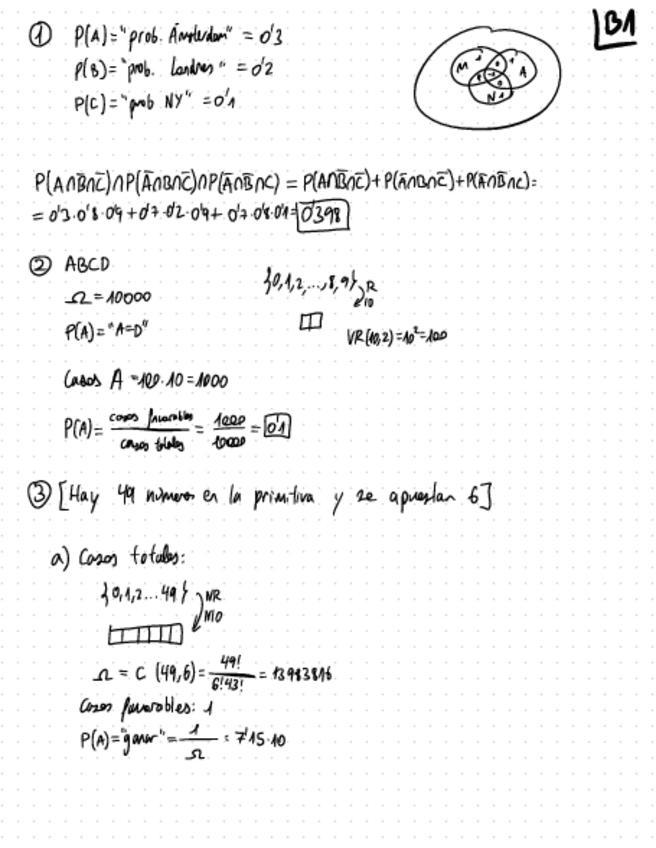 B1
① P(A)="prob. Ámsterdam" = 0'3
P(B)="prob. Londres" = 0'2
P(C)="prob NY" = 0'1
M A N
P(A∩B̅∩C̅)∩P(A̅∩B∩C̅)∩P(A̅∩B̅∩C) = P(A∩B̅∩C̅)+P(A̅∩B∩C̅)+P(A̅∩B̅∩C)=
= 0'3·0'8·0'9+0'7·0'2·0'9+0'7·0'8·0'1=0'398
② ABCD
Ω=10000
P(A)="A=D"
{0,1,2,...,8,9} R
IO
VR(10,2)=10²=100
Casos A =100·10=1000
P(A)= casos favorables / casos totales = 1000/10000 = 0'1
③ [Hay 49 números en la primitiva y se apuestan 6]
a) Casos totales:
{0,1,2...49} NR
NIO
Ω = C (49,6)= 49!/6!43! = 13983816
Casos favorables: 1
P(A)="ganar"= 1/Ω = 7'15·10